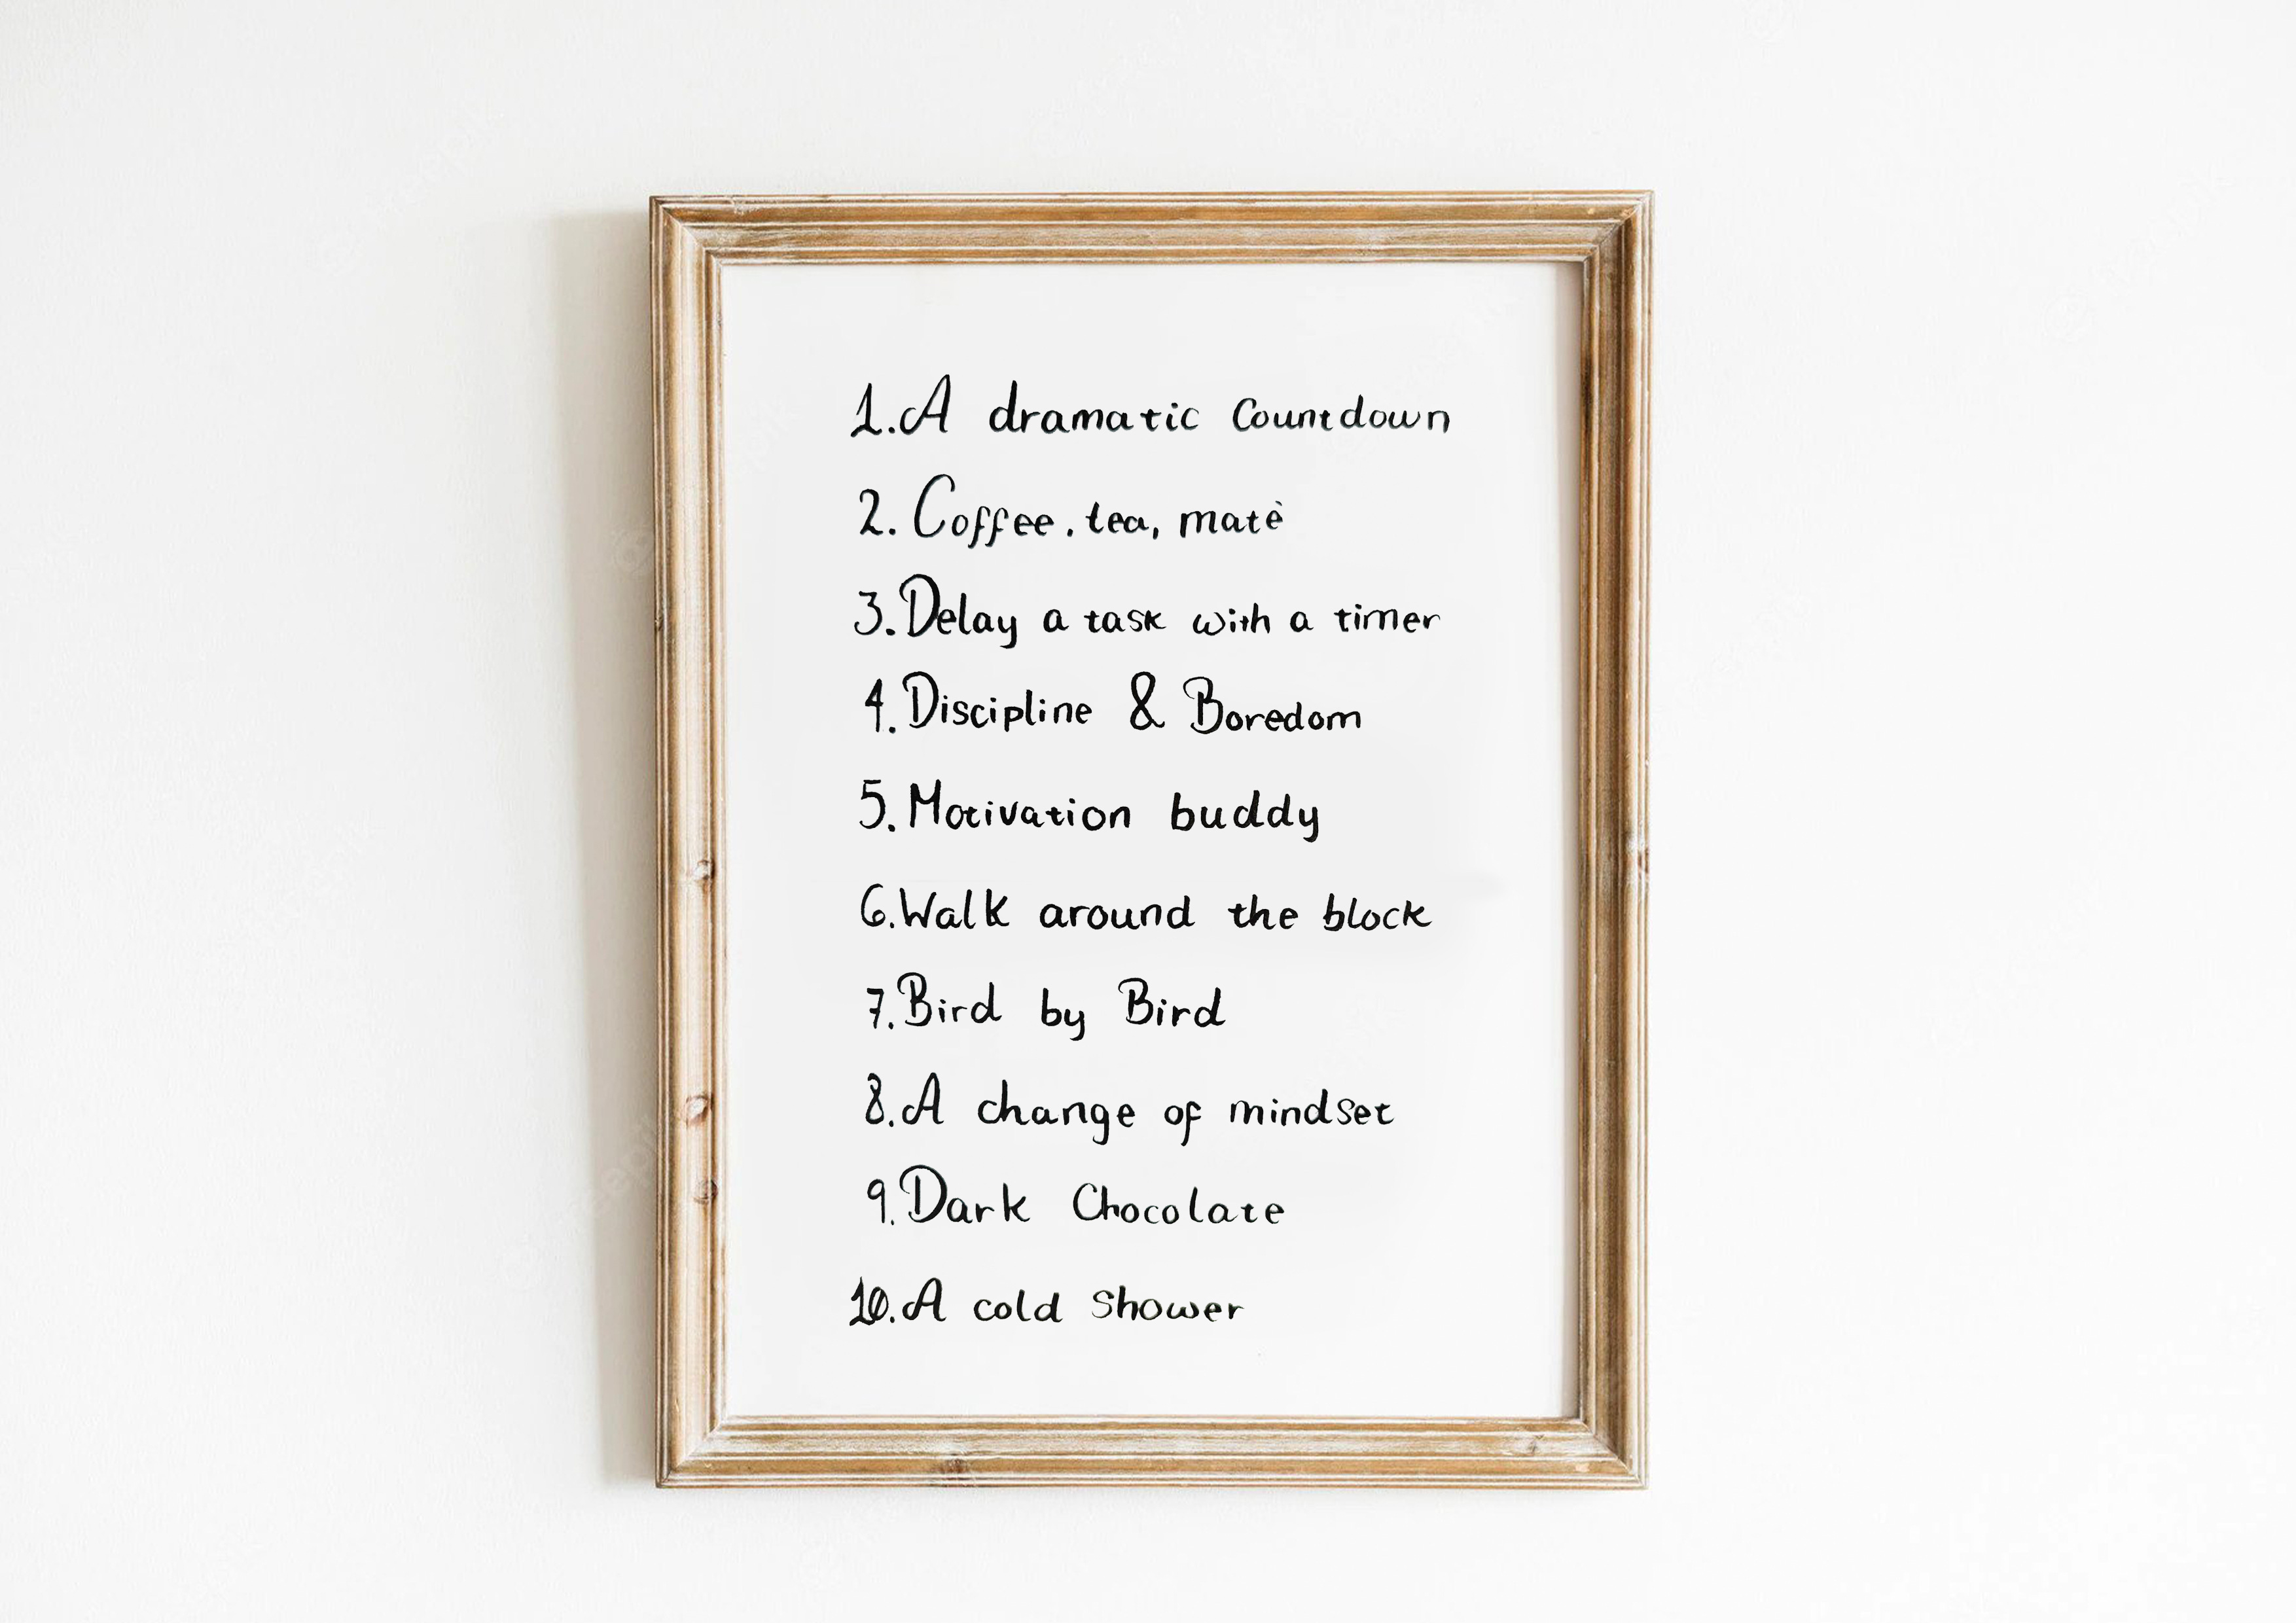 1. A dramatic Countdown
2. Coffee. tea, matè
3. Delay a task with a timer
4. Discipline & Boredom
5. Motivation buddy
6. Walk around the block
7. Bird by Bird
8. A change of mindset
9. Dark Chocolate
10. A cold shower